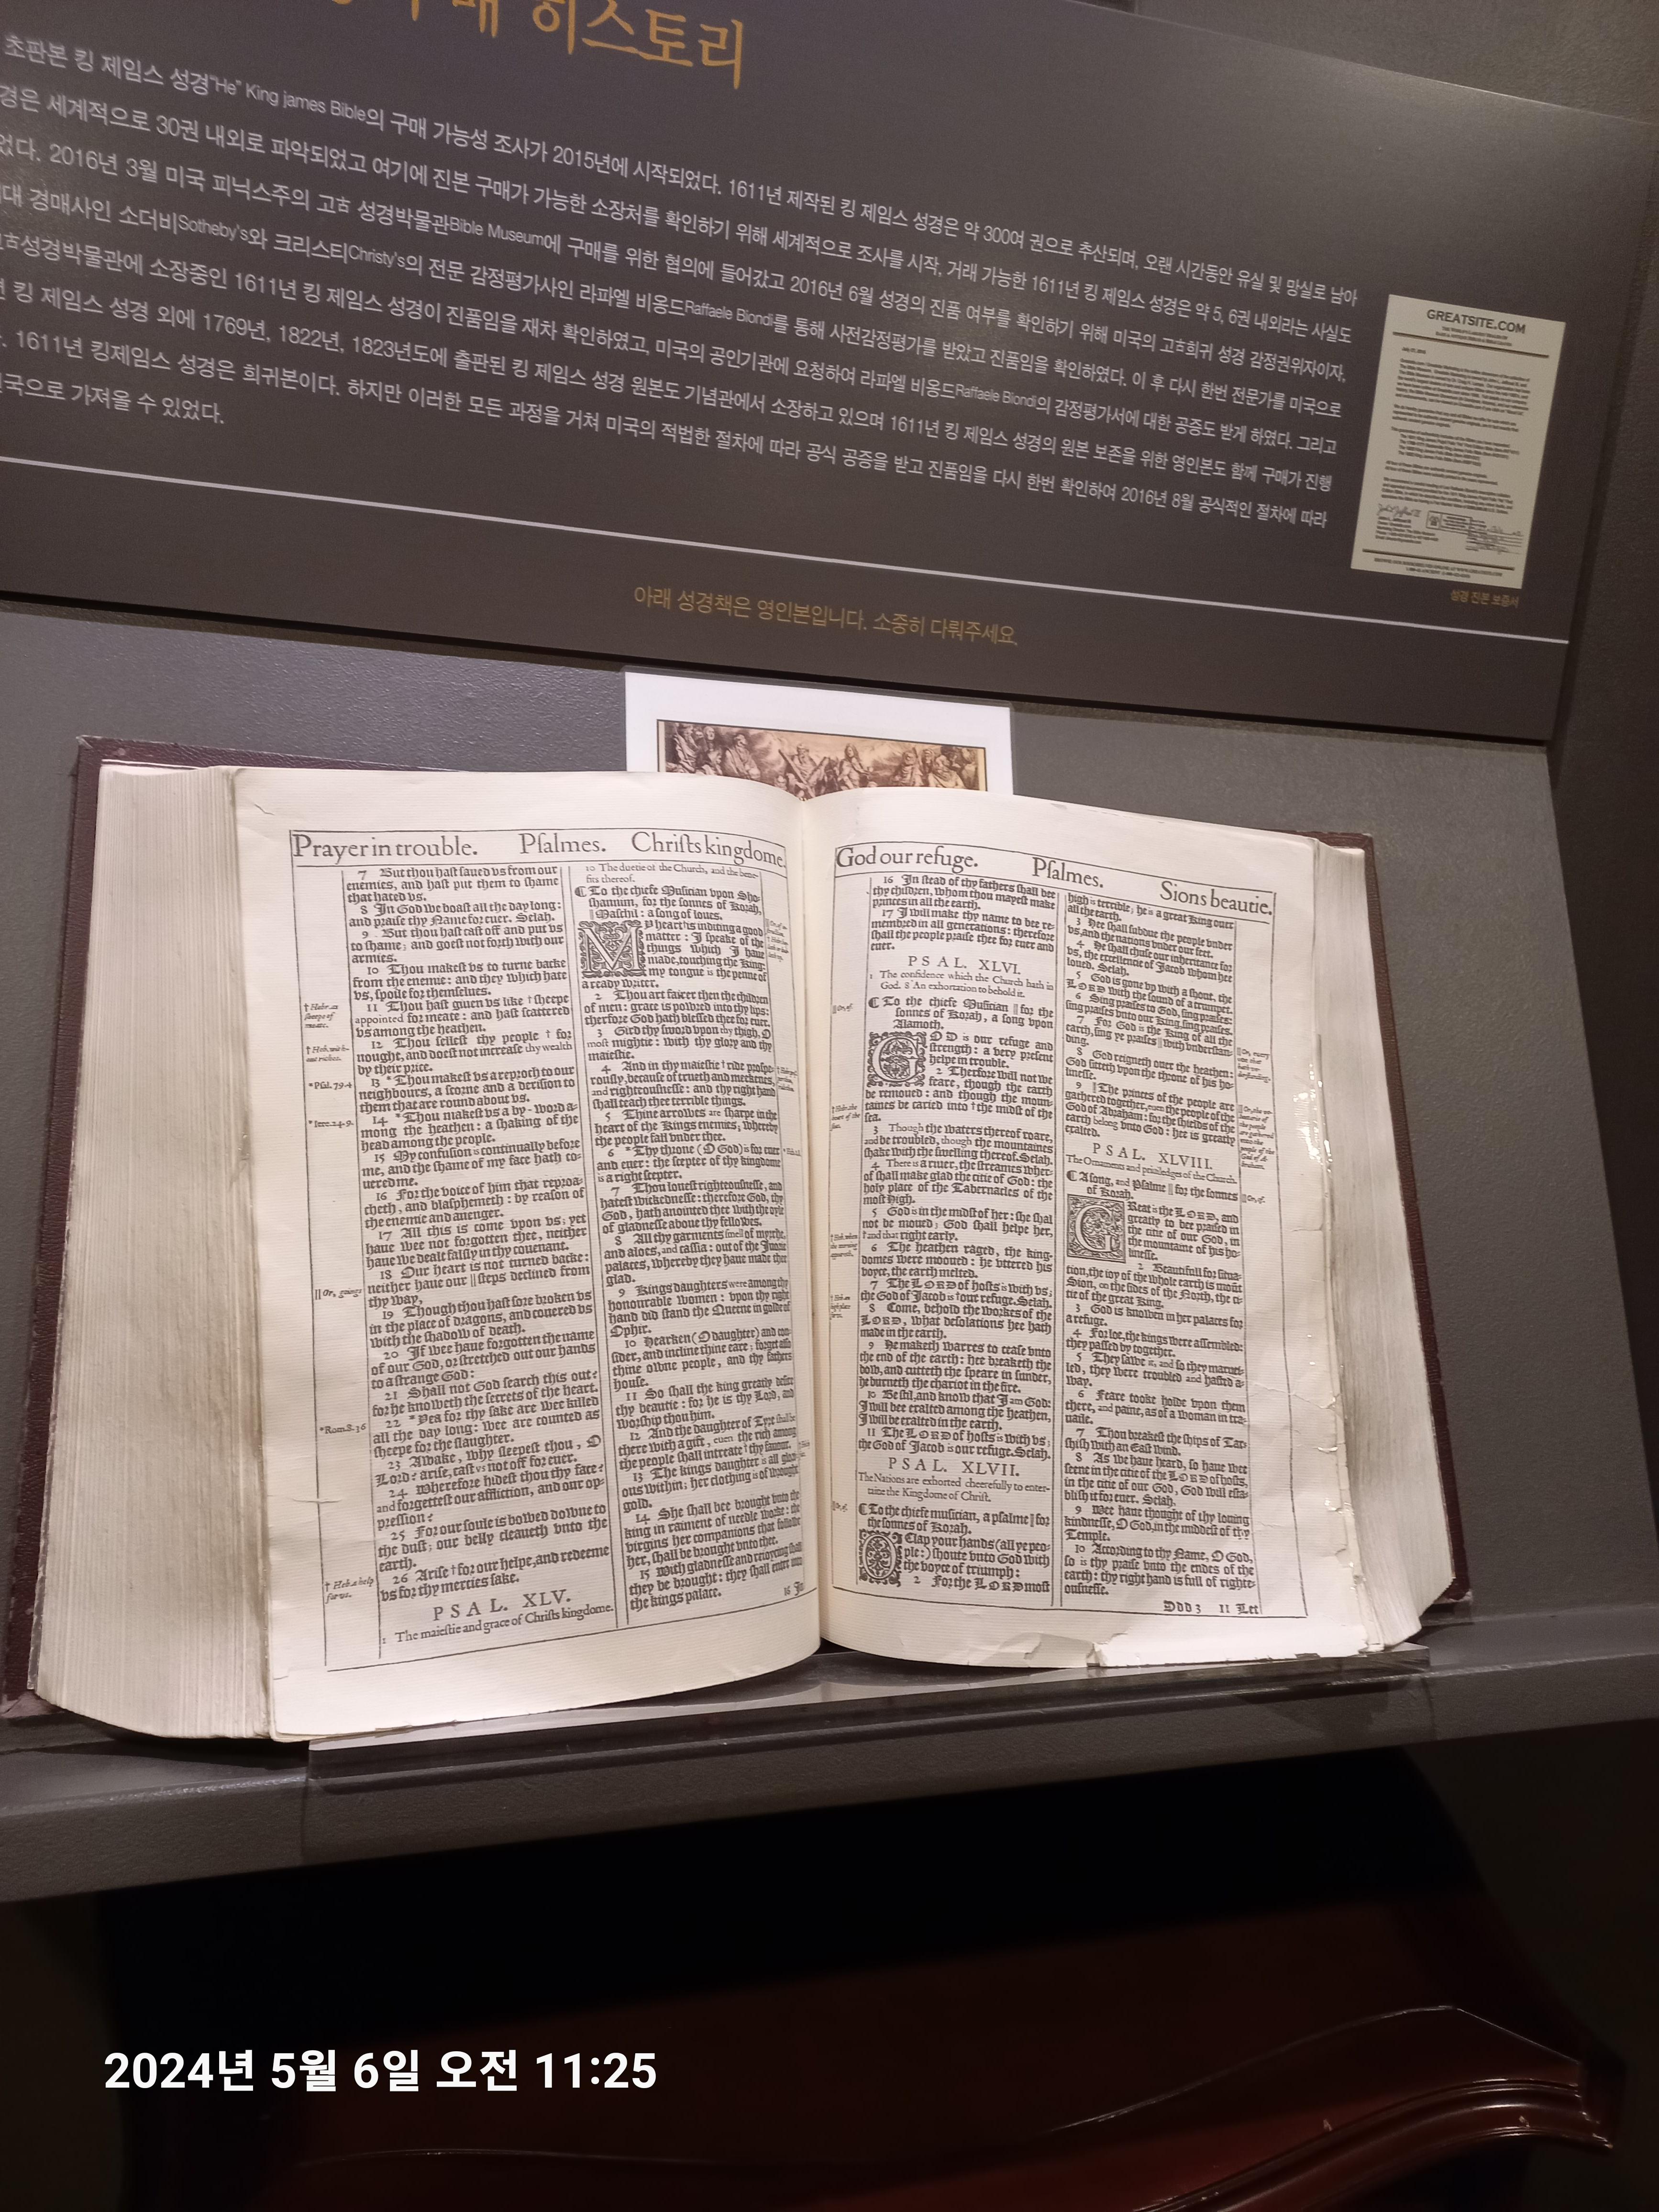 매 히스토리
초판본 킹 제임스 성경“He” King james Bible의 구매 가능성 조사가 2015년에 시작되었다. 1611년 제작된 킹 제임스 성경은 약 300여 권으로 추산되며, 오랜 시간동안 유실 및 망실로 남아
경은 세계적으로 30권 내외로 파악되었고 여기에 진본 구매가 가능한 소장처를 확인하기 위해 세계적으로 조사를 시작, 거래 가능한 1611년 킹 제임스 성경은 약 5, 6권 내외라는 사실도
었다. 2016년 3월 미국 피닉스주의 고古 성경박물관Bible Museum에 구매를 위한 협의에 들어갔고 2016년 6월 성경의 진품 여부를 확인하기 위해 미국의 고古희귀 성경 감정권위자이자,
대 경매사인 소더비Sotheby's와 크리스티Christy's의 전문 감정평가사인 라파엘 비옹드Raffaele Biondi를 통해 사전감정평가를 받았고 진품임을 확인하였다. 이 후 다시 한번 전문가를 미국으로
古성경박물관에 소장중인 1611년 킹 제임스 성경이 진품임을 재차 확인하였고, 미국의 공인기관에 요청하여 라파엘 비옹드Raffaele Biondi의 감정평가서에 대한 공증도 받게 하였다. 그리고
킹 제임스 성경 외에 1769년, 1822년, 1823년도에 출판된 킹 제임스 성경 원본도 기념관에서 소장하고 있으며 1611년 킹 제임스 성경의 원본 보존을 위한 영인본도 함께 구매가 진행
. 1611년 킹제임스 성경은 희귀본이다. 하지만 이러한 모든 과정을 거쳐 미국의 적법한 절차에 따라 공식 공증을 받고 진품임을 다시 한번 확인하여 2016년 8월 공식적인 절차에 따라
국으로 가져올 수 있었다.
GREATSITE.COM
성경 진본 보증서
아래 성경책은 영인본입니다. 소중히 다뤄주세요.
Prayer in trouble. Pſalmes. Chriſts kingdome.
7 But thou haſt ſaued vs from our
enemies, and haſt put them to ſhame
that hated vs.
8 In God we boaſt all the day long:
and praiſe thy Name for euer. Selah.
9 But thou haſt caſt off and put vs
to ſhame; and goeſt not forth with our
armies.
10 Thou makeſt vs to turne backe
from the enemie: and they which hate
vs, ſpoile for themſelues.
11 Thou haſt giuen vs like † ſheepe
appointed for meate: and haſt ſcattered
vs among the heathen.
12 Thou ſelleſt thy people † for
nought, and doeſt not increaſe thy wealth
by their price.
13 *Thou makeſt vs a reproch to our
neighbours, a ſcorne and a deriſion to
them that are round about vs.
14 *Thou makeſt vs a by-word a-
mong the heathen: a ſhaking of the
head among the people.
15 My confuſion is continually before
me, and the ſhame of my face hath co-
uered me.
16 For the voice of him that reproa-
cheth, and blaſphemeth: by reaſon of
the enemie and auenger.
17 All this is come vpon vs; yet
haue wee not forgotten thee, neither
haue we dealt falſly in thy couenant.
18 Our heart is not turned backe:
neither haue our || ſteps declined from
thy way,
19 Though thou haſt ſore broken vs
in the place of dragons, and couered vs
with the ſhadow of death.
20 If wee haue forgotten the name
of our God, or ſtretched out our hands
to a ſtrange God:
21 Shall not God ſearch this out?
for he knoweth the ſecrets of the heart.
22 *Yea for thy ſake are wee killed
all the day long: wee are counted as
ſheepe for the ſlaughter.
23 Awake, why ſleepeſt thou, O
Lord? ariſe, caſt vs not off for euer.
24 Wherefore hideſt thou thy face?
and forgetteſt our affliction, and our op-
preſſion?
25 For our ſoule is bowed downe to
the duſt; our belly cleaueth vnto the
earth.
26 Ariſe † for our helpe, and redeeme
vs for thy mercies ſake.
PSAL. XLV.
1 The maieſtie and grace of Chriſts kingdome.
*Pſal. 79.4
*Iere. 24.9.
|| Or, goings
*Rom. 8. 36
10 The duetie of the Church, and the bene-
fits thereof.
¶ To the chiefe Muſician vpon Sho-
ſhannim, for the ſonnes of Korah,
|| Maſchil: a ſong of loues.
My heart is inditing a good
matter: I ſpeake of the
things which I haue
made, touching the King:
my tongue is the penne of
a ready writer.
2 Thou art fairer then the children
of men: grace is powred into thy lips:
therfore God hath bleſſed thee for euer.
3 Gird thy ſword vpon thy thigh, O
moſt mightie: with thy glory and thy
maieſtie.
4 And in thy maieſtie † ride proſpe-
rouſly, becauſe of trueth and meekenes,
and righteouſneſſe: and thy right hand
ſhall teach thee terrible things.
5 Thine arrowes are ſharpe in the
heart of the Kings enemies; whereby
the people fall vnder thee.
6 *Thy throne (O God) is for euer
and euer: the ſcepter of thy kingdome
is a right ſcepter.
7 Thou loueſt righteouſneſſe, and
hateſt wickedneſſe: therefore God, thy
God, hath anointed thee with the oyle
of gladneſſe aboue thy fellowes.
8 All thy garments ſmell of myrrhe,
and aloes, and caſſia: out of the Iuorie
palaces, whereby they haue made thee
glad.
9 Kings daughters were among thy
honourable women: vpon thy right
hand did ſtand the Queene in golde of
Ophir.
10 Hearken (O daughter) and con-
ſider, and incline thine eare; forget alſo
thine owne people, and thy fathers
houſe.
11 So ſhall the king greatly deſire
thy beautie: for he is thy Lord, and
worſhip thou him.
12 And the daughter of Tyre ſhall be
there with a gift, euen the rich among
the people ſhall intreate † thy fauour.
13 The kings daughter is all glori-
ous within; her clothing is of wrought
gold.
14 She ſhall bee brought vnto the
king in raiment of needle worke: the
virgins her companions that follow
her, ſhall be brought vnto thee.
15 With gladneſſe and reioycing ſhall
they be brought: they ſhall enter into
the kings palace.
16 In
God our refuge. Pſalmes. Sions beautie.
16 In ſtead of thy fathers ſhall bee
thy children, whom thou mayeſt make
princes in all the earth.
17 I will make thy name to bee re-
membred in all generations: therefore
ſhall the people praiſe thee for euer and
euer.
PSAL. XLVI.
1 The confidence which the Church hath in
God. 8 An exhortation to behold it.
¶ To the chiefe Muſician || for the
ſonnes of Korah, a ſong vpon
Alamoth.
GOD is our refuge and
ſtrength: a very preſent
helpe in trouble.
2 Therfore will not we
feare, though the earth
be remoued: and though the moun-
taines be caried into † the midſt of the
ſea.
3 Though the waters thereof roare,
and be troubled, though the mountaines
ſhake with the ſwelling thereof. Selah.
4 There is a riuer, the ſtreames wher-
of ſhall make glad the citie of God: the
holy place of the Tabernacles of the
moſt High.
5 God is in the midſt of her: ſhe ſhal
not be moued; God ſhall helpe her,
† and that right early.
6 The heathen raged, the king-
domes were mooued: he vttered his
voyce, the earth melted.
7 The LORD of hoſts is with vs;
the God of Jacob is † our refuge. Selah.
8 Come, behold the workes of the
LORD, what deſolations hee hath
made in the earth.
9 He maketh warres to ceaſe vnto
the end of the earth: hee breaketh the
bow, and cutteth the ſpeare in ſunder,
he burneth the chariot in the fire.
10 Be ſtil, and know that I am God:
I will bee exalted among the heathen,
I will be exalted in the earth.
11 The LORD of hoſts is with vs;
the God of Jacob is our refuge. Selah.
PSAL. XLVII.
The Nations are exhorted cheerefully to enter-
taine the Kingdome of Chriſt.
¶ To the chiefe muſician, a pſalme || for
the ſonnes of Korah.
O Clap your hands (all ye peo-
ple:) ſhoute vnto God with
the voyce of triumph:
2 For the LORD moſt
high is terrible; he is a great King ouer
all the earth.
3 Hee ſhall ſubdue the people vnder
vs, and the nations vnder our feet.
4 He ſhall chuſe our inheritance for
vs, the excellencie of Jacob whom hee
loued. Selah.
5 God is gone vp with a ſhout, the
LORD with the ſound of a trumpet.
6 Sing praiſes to God, ſing praiſes:
ſing praiſes vnto our King, ſing praiſes.
7 For God is the King of all the
earth, ſing ye praiſes || with vnderſtan-
ding.
8 God reigneth ouer the heathen:
God ſitteth vpon the throne of his ho-
lineſſe.
9 || The princes of the people are
gathered together, euen the people of the
God of Abraham: for the ſhields of the
earth belong vnto God: hee is greatly
exalted.
PSAL. XLVIII.
The Ornaments and priuiledges of the Church.
¶ A ſong, and Pſalme || for the ſonnes
of Korah.
GReat is the LORD, and
greatly to bee praiſed in
the citie of our God, in
the mountaine of his ho-
lineſſe.
2 Beautifull for ſitua-
tion, the ioy of the whole earth is moũt
Sion, on the ſides of the North, the ci-
tie of the great King.
3 God is knowen in her palaces for
a refuge.
4 For loe, the kings were aſſembled:
they paſſed by together.
5 They ſawe it, and ſo they maruei-
led, they were troubled and haſted a-
way.
6 Feare tooke holde vpon them
there, and paine, as of a woman in tra-
uaile.
7 Thou breakeſt the ſhips of Tar-
ſhiſh with an Eaſt wind.
8 As we haue heard, ſo haue wee
ſeene in the citie of the LORD of hoſts,
in the citie of our God, God will eſta-
bliſh it for euer. Selah.
9 Wee haue thought of thy louing
kindneſſe, O God, in the middeſt of thy
Temple.
10 According to thy Name, O God,
ſo is thy praiſe vnto the endes of the
earth: thy right hand is full of righte-
ouſneſſe.
Ddd 3 11 Let
2024년 5월 6일 오전 11:25